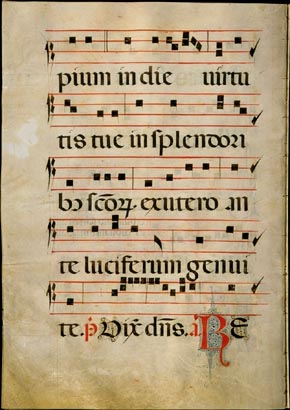 pium in die virtu
tis tue in splendori
bꝫ scōꝝ. ex utero an
te luciferum genui
te. p̄ Dix̄ dn̄s. a RE